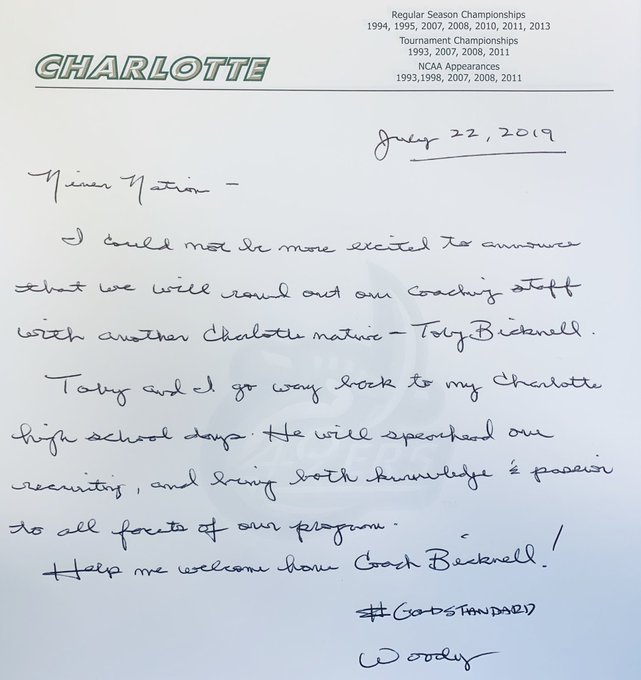 Regular Season Championships
1994, 1995, 2007, 2008, 2010, 2011, 2013
Tournament Championships
1993, 2007, 2008, 2011
NCAA Appearances
1993,1998, 2007, 2008, 2011
CHARLOTTE
July 22, 2019
Niner Nation -
I could not be more excited to announce
that we will round out our coaching staff
with another Charlotte native - Toby Bicknell.
Toby and I go way back to my Charlotte
high school days. He will spearhead our
recruiting, and bring both knowledge & passion
to all facets of our program.
Help me welcome home Coach Bicknell!
#GOLDSTANDARD
Woody
49ERS